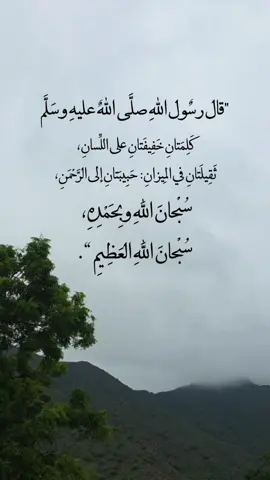 "قالَ رسُولَ اللهِ صلَّى اللهُ عليهِ وسَلَّم
كَلِمَتانِ خَفِيفَتانِ على اللِّسانِ،
ثَقِيلَتانِ في المِيزانِ: حَبِيبَتانِ إلى الرَّحْمَنِ،
سُبْحانَ اللهِ وبِحَمْدِهِ،
سُبْحانَ اللهِ العَظِيمِ “.